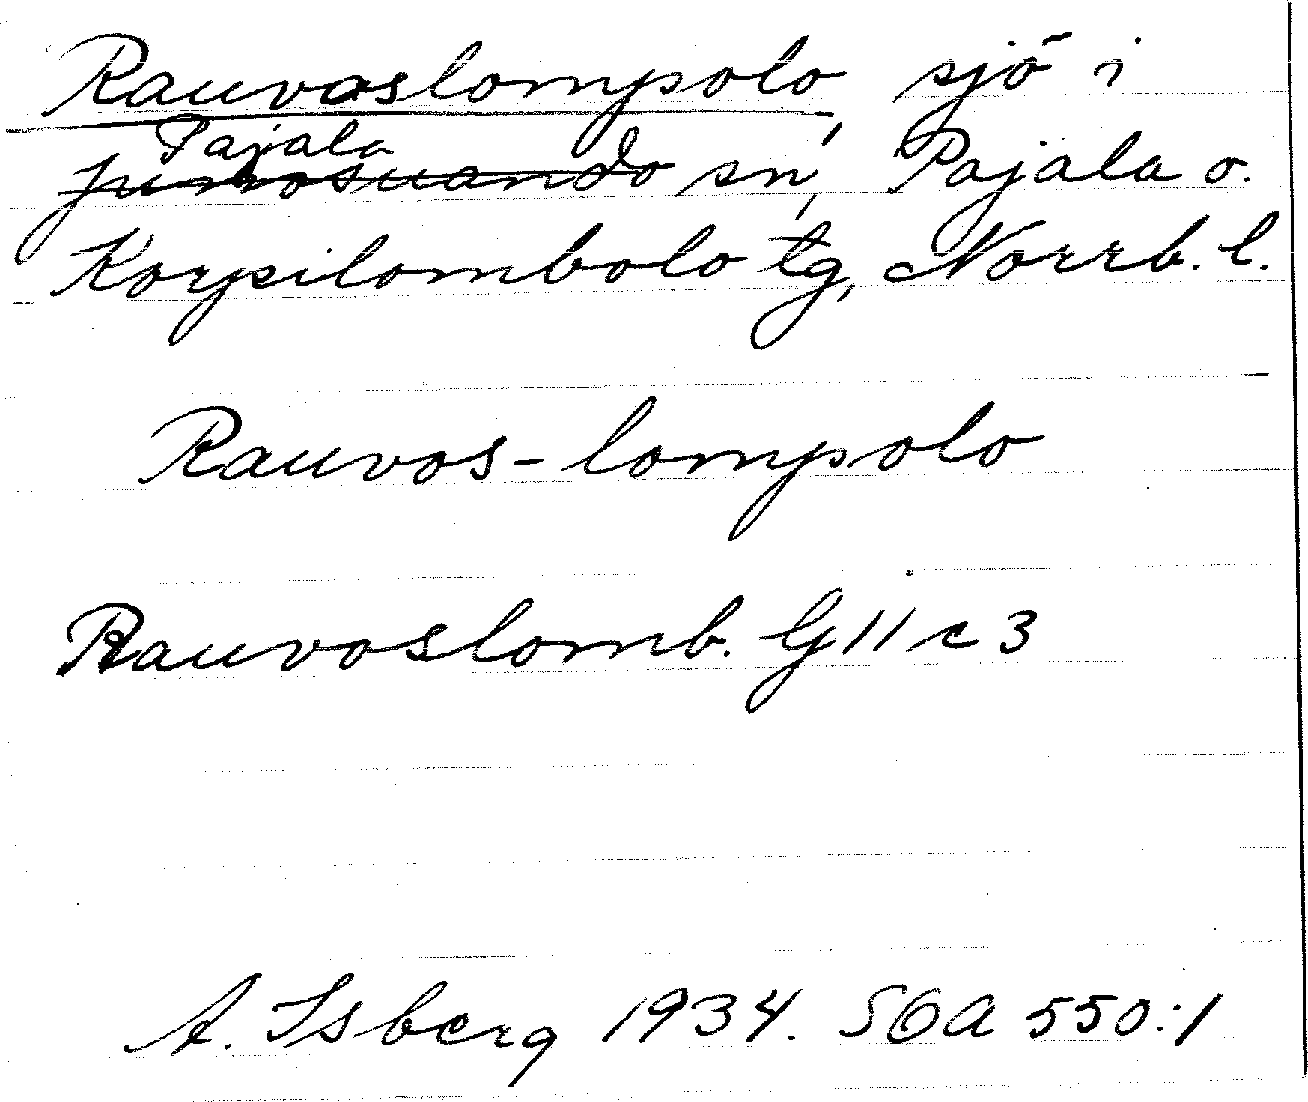 Rauvoslompolo, sjö i
Pajala
Junosuando sn, Pajala o.
Korpilombolo tg, Norrb. l.
Rauvos-lompolo
Rauvoslomb. G 11 c 3
A. Isberg 1934. SOA 550:1